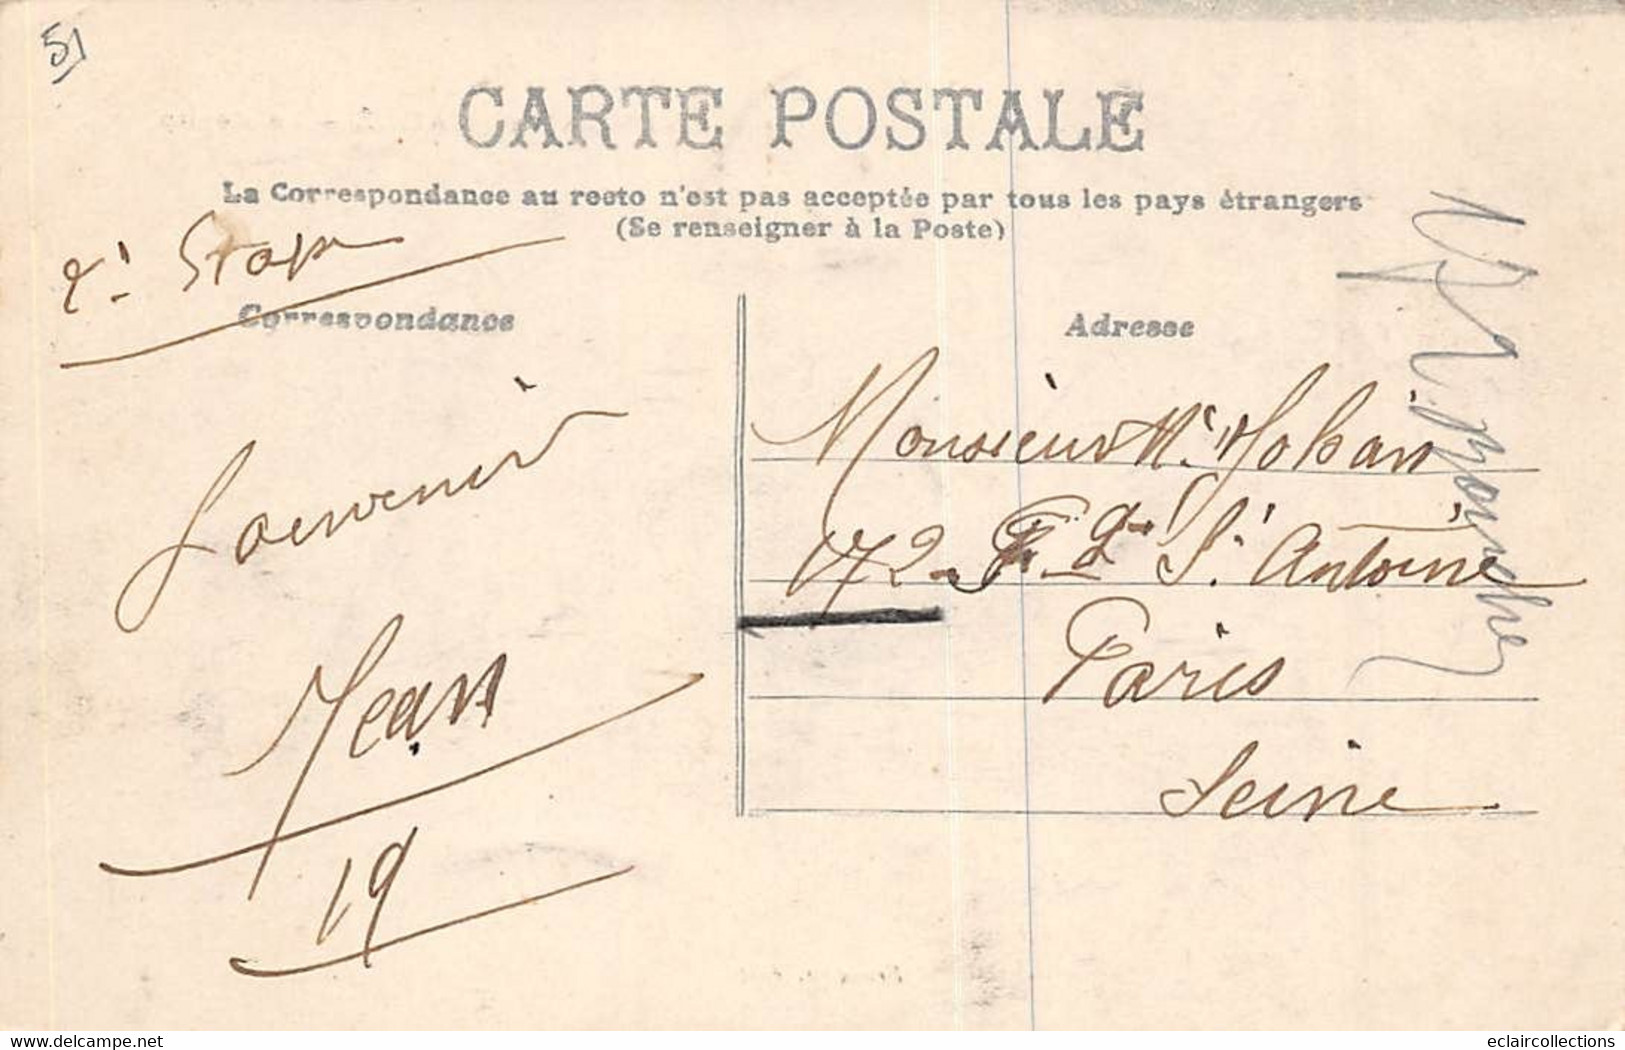 51
CARTE POSTALE
La Correspondance au recto n'est pas acceptée par tous les pays étrangers
(Se renseigner à la Poste)
Correspondance
Souvenir
Jean
19
Adresse
Monsieur Johan
172 F. g. St. Antoine
Paris
Seine
Delcampe.net
eclaircollections